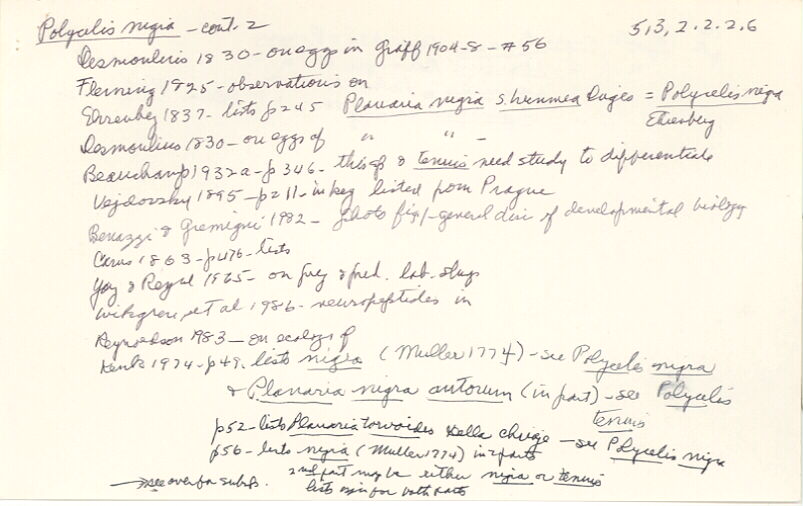 Polycelis nigra - cont. 2
5,3,2.2.2.6
Desmoulins 1830 - on eggs in Graff 1904-8 - #56
Fleming 1825 - observations on
Ehrenberg 1837 - lists p245 Planaria nigra Duges = Polycelis nigra Ehrenberg
Desmoulins 1830 - on eggs of " " -
Beauchamp 1932a - p346 - this sp & tenuis need study to differentiate
Vejdovsky 1895 - p211 - in key listed from Prague
Benazzi & Gremigni 1982 - photo fig/ - general disc of developmental biology
Carus 1863 - p476 - lists
& Reynoldson on & lab.
Wikgren, et al 1986 - neuropeptides in
Reynoldson 1983 - on ecology of
Kenk 1974 - p49. lists nigra (Muller 1774) - see Polycelis nigra
& Planaria nigra autorum (in part) - see Polycelis tenuis
p52 - lists Planaria torvoides Della Chiaje - see Polycelis nigra
p56 - lists nigra (Muller 1774) in 2 parts
2nd part may be either nigra or tenuis
lists syn for both parts
→ see over for subsp.